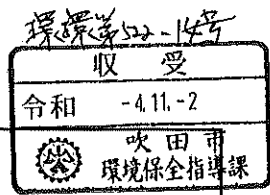 環環第522-14号
収受
令和 -4.11.-2
吹田市
環境保全指導課